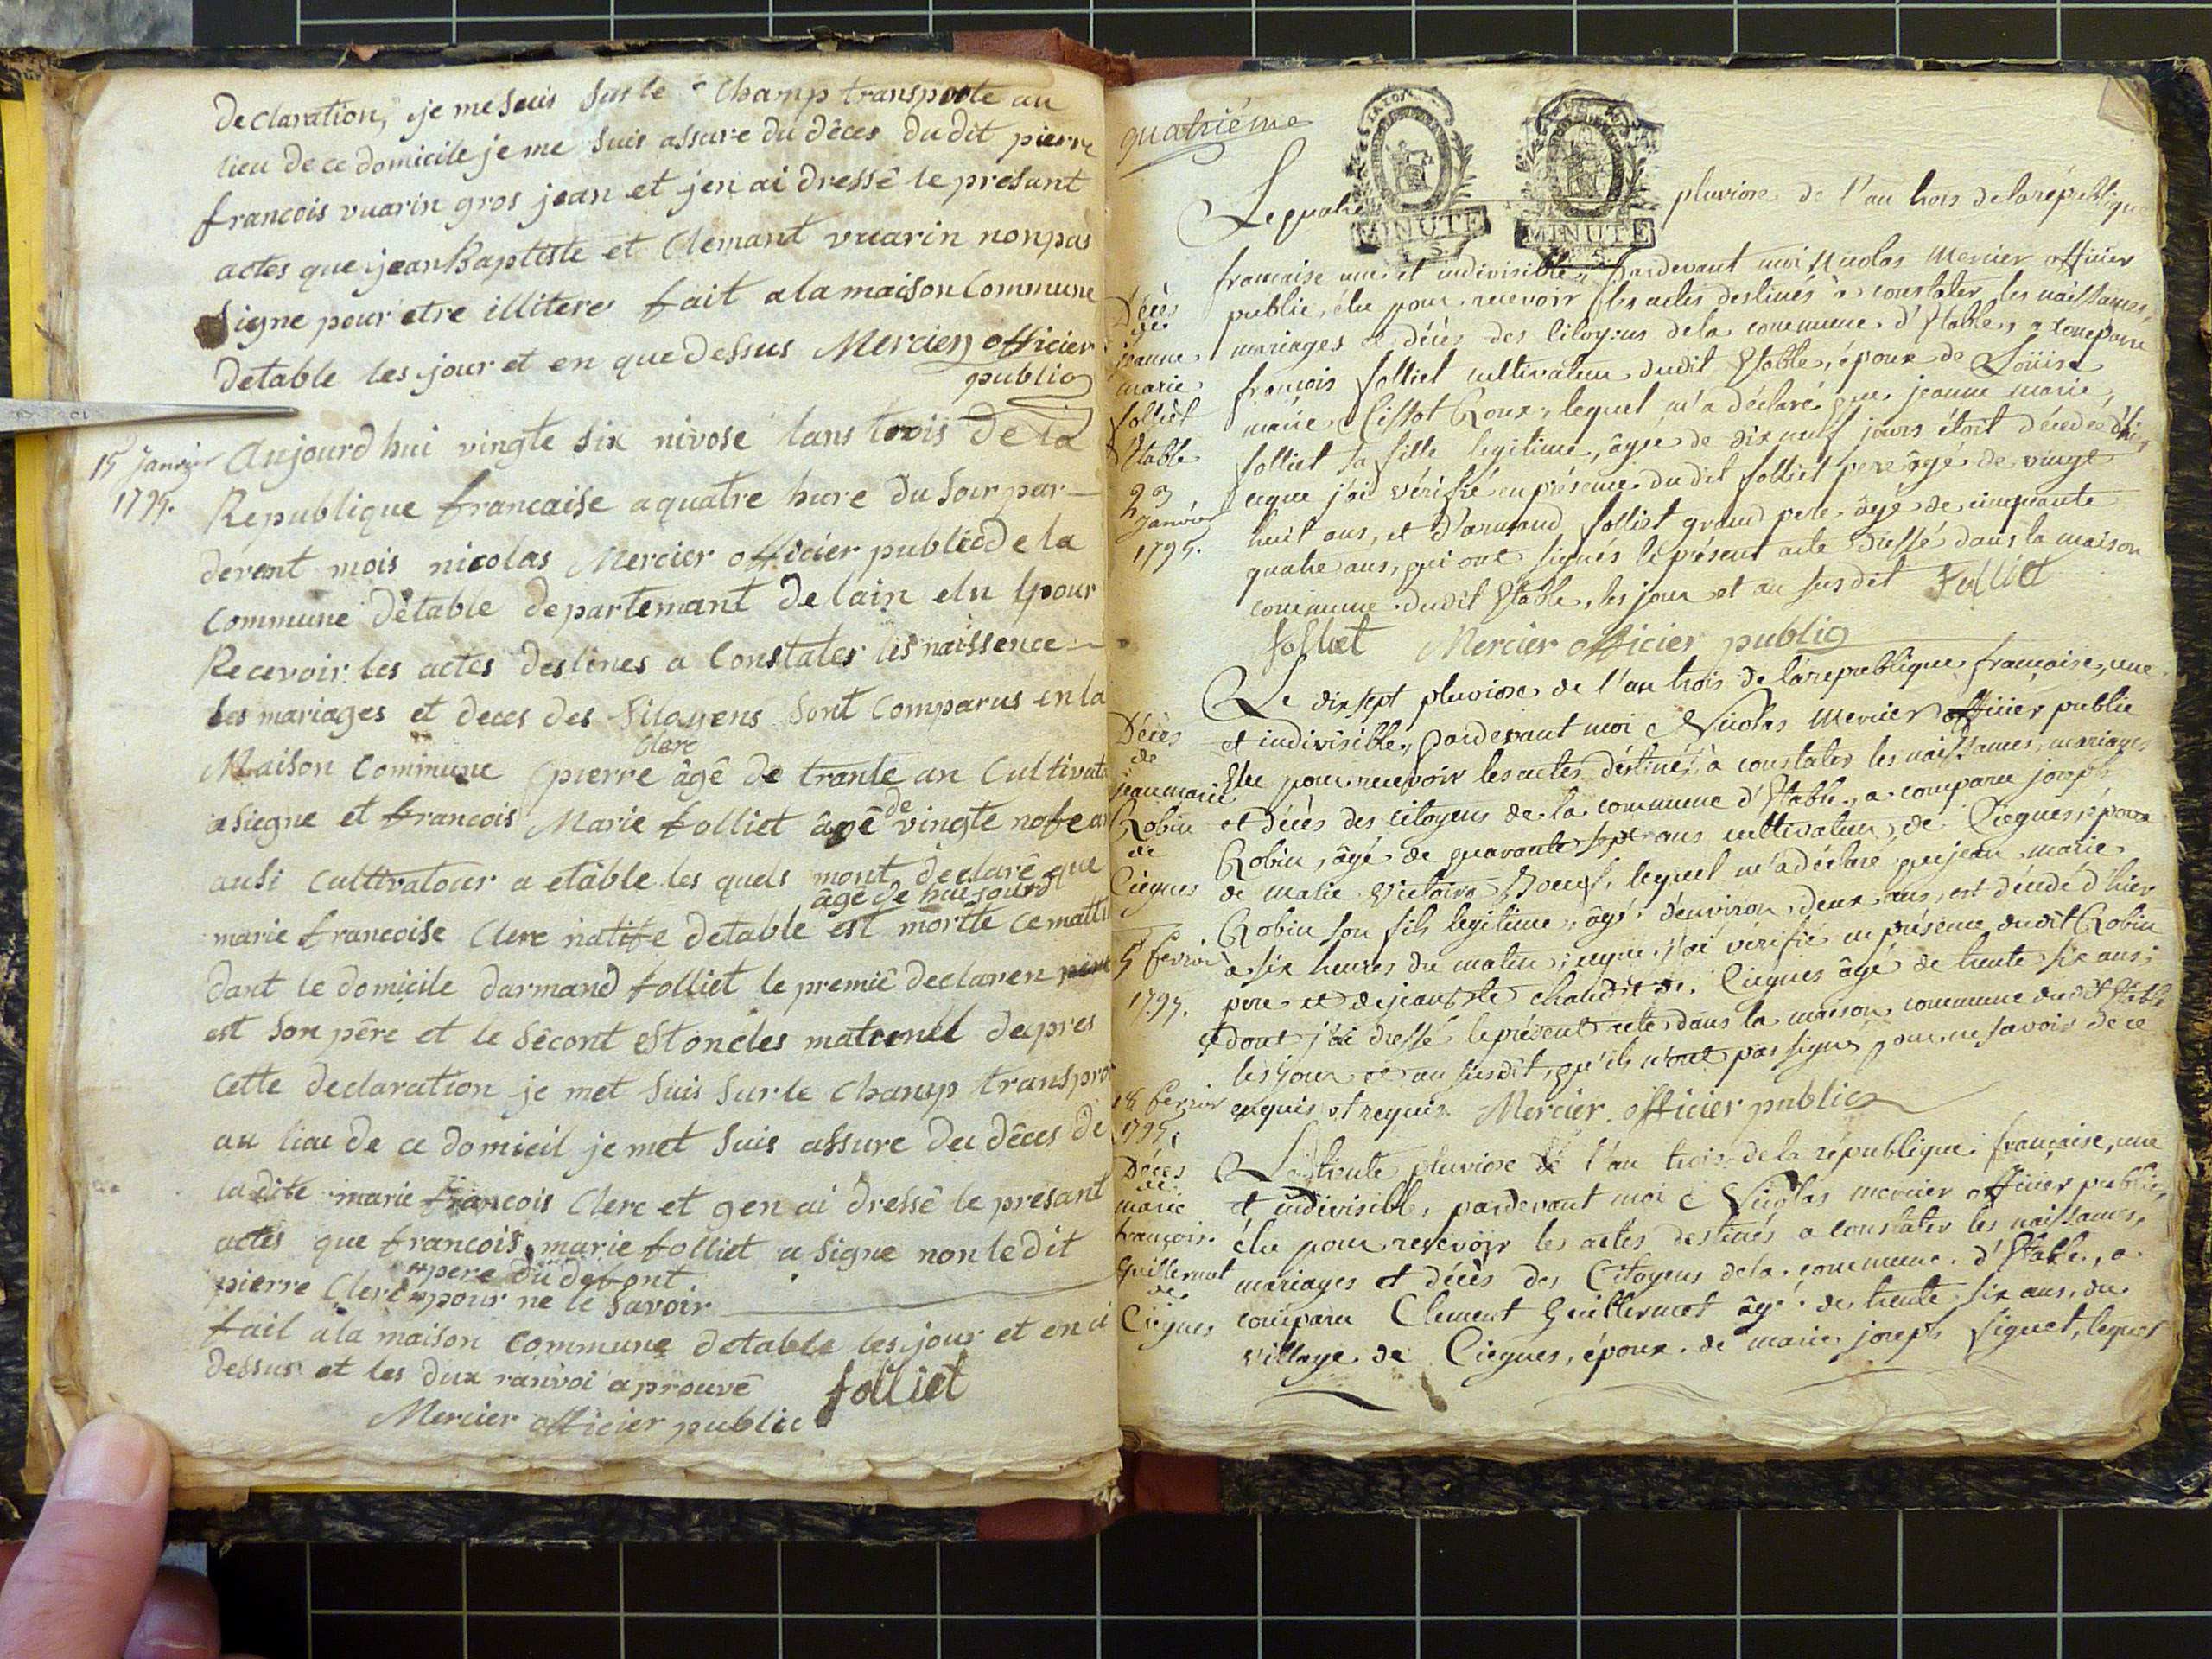 declaration, je me suis sur le Champ transporte au
lieu de ce domicile je me suis assure du dêces du dit pierre
francois vuarin gros jean et jen ai dressê le presant
actes que jean Baptiste et Clemant vuarin non pas
signe pour etre illitere fait a la maison Commune
detable les jour et en que dessus Mercier officier
public
15 janvier
1795.
Aujourd hui vingte six nivose lans trois de la
Republique francaise a quatre hure du soir par
devent mois nicolas Mercier officier public de la
Commune détable departemant de lain elu pour
Recevoir les actes destines a Constater les naissence
les mariages et deces des Sitoyens sont Comparus en la
Maison Commune pierre Clerc âgê de trante an Cultivat
a siegne et francois Marie folliet âgê de vingte nofe an
ausi Cultivatour a etâble les quels mont declarê que
âgê de hui jours
marie francoise Clerc natife detable est morte ce mattin
dant le domicile darmand folliet le premiê declaren
est son pêre et le sêcont est oncles maternel depres
cette declaration je met suis sur le Champ transpro
au lieu de ce domicil je met suis assure du dêces de
la dite marie francois Clerc et gen ai dressê le presant
actes que francois marie folliet a signe non le dit
pere du defont
pierre Clerc pour ne le savoir
fait a la maison commune detable les jour et en ci
dessus et les dux ranvoi aprouvê folliet
Mercier officier public
quatriéme
MINUTE MINUTE
Le quatre pluviose de l'an trois de la république
francaise une et indivisible, pardevant moi Nicolas Mercier officier
public, élu pour recevoir les actes destinés à constater les naissances,
mariages et décès des citoyens de la commune d'Etable, a comparu
françois folliet cultivateur dudit Etable, époux de Loüise
marie Roux, lequel m'a déclaré que jeanne marie
folliet sa fille legitime, âgée de dix neuf jours étoit décédée d'hier
ceque j'ai vérifié en présence dudit folliet pere âgé de vingt
huit ans, et d'armand folliet grand pere âgé de cinquante
quatre ans, qui ont signés le présent acte dressé dans la maison
commune dudit Etable, les jour et an susdit Folliet
folliet Mercier officier public
Décès
de
jeanne
marie
folliet
Etable
23
janvier
1795.
Le dix sept pluviose de l'an trois de la republique française, une
et indivisible, pardevant moi Nicolas Mercier officier public
Elu pour recevoir les actes déstinés à constater les naissances, mariages
et décès des citoyens de la commune d'Etable, a comparu joseph
Robin, âgé de quarante sept ans cultivateur, de Ciegnes, époux
de marie Victoire Boeuf, lequel m'a déclaré que jean marie
Robin son fils legitime, âgé d'environ deux ans, est décédé d'hier
à six heures du matin; ceque j'ai vérifié en présence dudit Robin
pere et de jean Bte de Ciegnes âgé de trente six ans;
et dont j'ai dressé le présent acte dans la maison commune dudit Etable
les jour et an susdit, qu'ils n'ont pas signé pour ne savoir de ce
enquis et requis. Mercier officier public
Décès
de
jean marie
Robin
de
Ciegnes
5 fevrier
1795.
18 fevrier
1795.
Décès
de
marie
françoise
Guillermot
de
Ciegnes
Le trente pluviose de l'an trois de la république française, une
et indivisible, pardevant moi Nicolas mercier officier public,
élu pour recevoir les actes destinés a constater les naissances,
mariages et décès des Citoyens de la commune d'Etable, a
comparu Clement Guillermot âgé de trente six ans, du
village de Ciegnes, époux de marie joseph signet, lequel